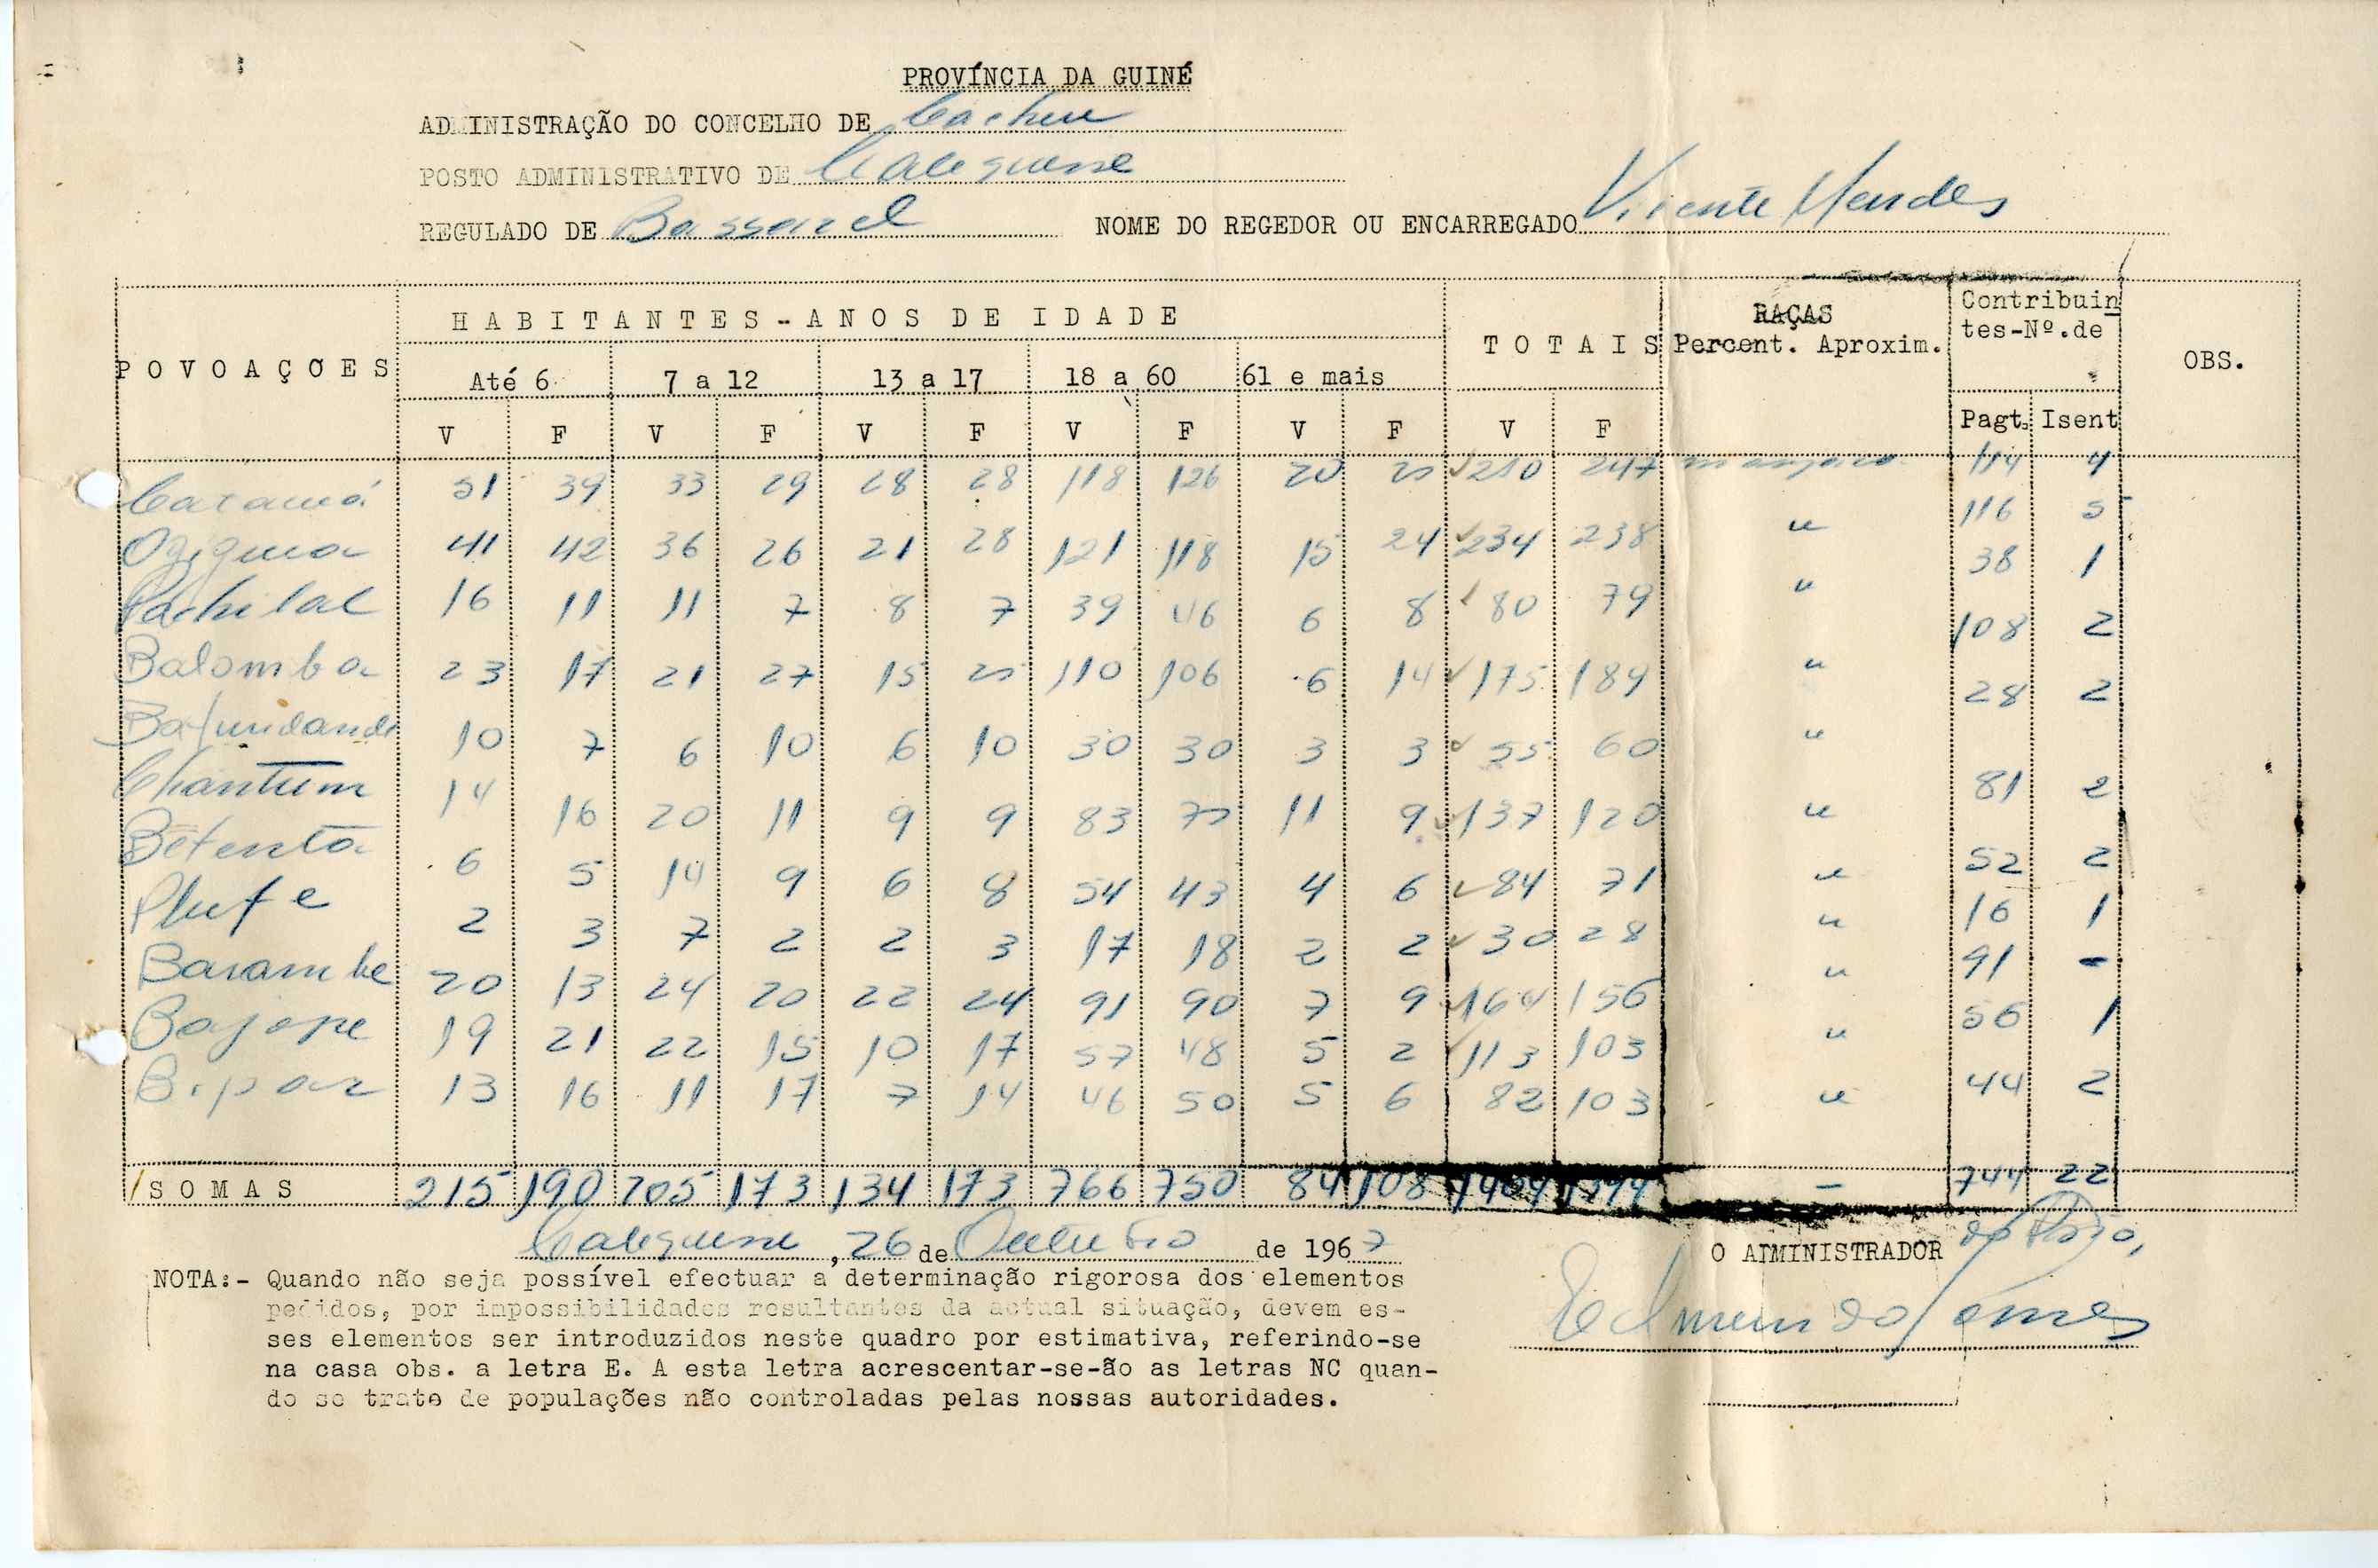 PROVÍNCIA DA GUINÉ
ADMINISTRAÇÃO DO CONCELHO DE Cacheu
POSTO ADMINISTRATIVO DE Calequisse
REGULADO DE Bassarel NOME DO REGEDOR OU ENCARREGADO Vicente Mendes
POVOAÇÕES HABITANTES-ANOS DE IDADE TOTAIS RAÇAS Percent. Aproxim. Contribuin tes-Nº.de OBS.
Até 6 7 a 12 13 a 17 18 a 60 61 e mais
V F V F V F V F V F V F Pagt. Isent
51 39 33 29 28 28 118 126 20 25 210 247 manjaco 114 4
41 42 36 26 21 28 121 118 15 24 234 238 " 116 5
Pachilal 16 11 11 7 8 7 39 46 6 8 80 79 " 38 1
Balomba 23 17 21 27 15 25 110 106 6 14 175 189 " 108 2
10 7 6 10 6 10 30 30 3 3 55 60 " 28 2
Chantum 14 16 20 11 9 9 83 75 11 9 137 120 " 81 2
Betenta 6 5 14 9 6 8 54 43 4 6 84 71 " 52 2
Plufe 2 3 7 2 2 3 17 18 2 2 30 28 " 16 1
Barambe 20 13 24 20 22 24 91 90 7 9 164 156 " 91 -
Bajope 19 21 22 15 10 17 57 48 5 2 113 103 " 56 1
Bipar 13 16 11 17 7 14 46 50 5 6 82 103 " 44 2
SOMAS 215 190 205 173 134 173 766 750 84 108 1404 1394 - 744 22
Calequisse, 26 de Outubro de 1967
O ADMINISTRADOR do Posto,
Edmundo Gomes
NOTA:- Quando não seja possível efectuar a determinação rigorosa dos elementos
pedidos, por impossibilidades resultantes da actual situação, devem es-
ses elementos ser introduzidos neste quadro por estimativa, referindo-se
na casa obs. a letra E. A esta letra acrescentar-se-ão as letras NC quan-
do se trate de populações não controladas pelas nossas autoridades.